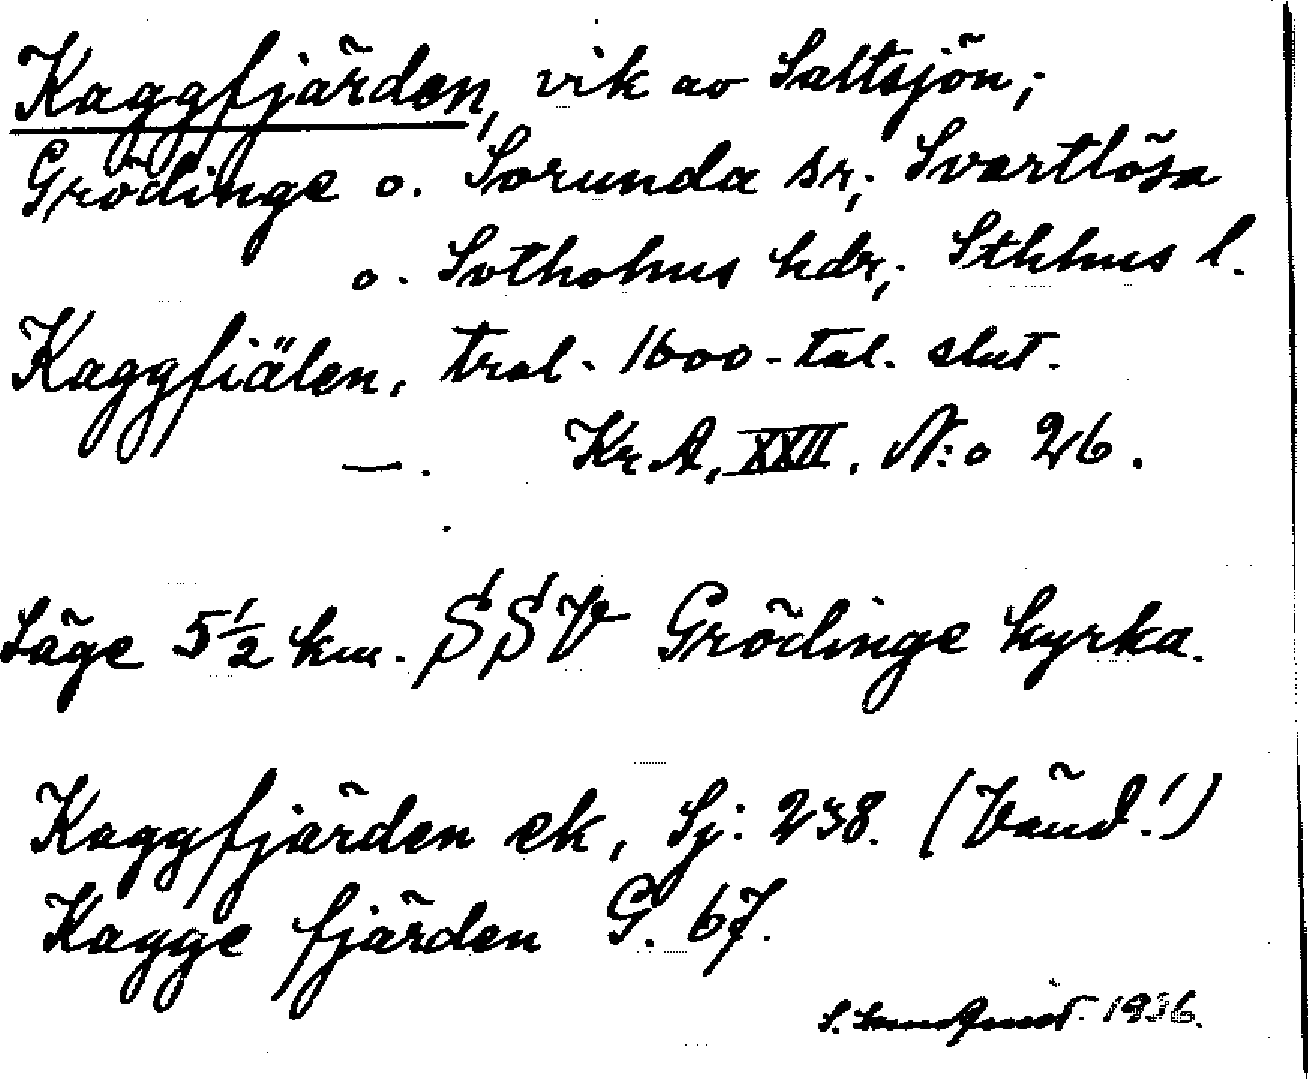 Kaggfjärden, vik av Saltsjön;
Grödinge o. Sorunda sr; Svartlösa
o. Sotholms hdr; Sthlms l.
Kaggfiälen, trol. 1600-tal. slut.
—. Kr.A, XXII. N:o 26.
Läge 5 1/2 km. SSV Grödinge kyrka.
Kaggfjärden ek, Sj. 238. (Vänd!)
Kagge fjärden G. 67.
S. 1936.